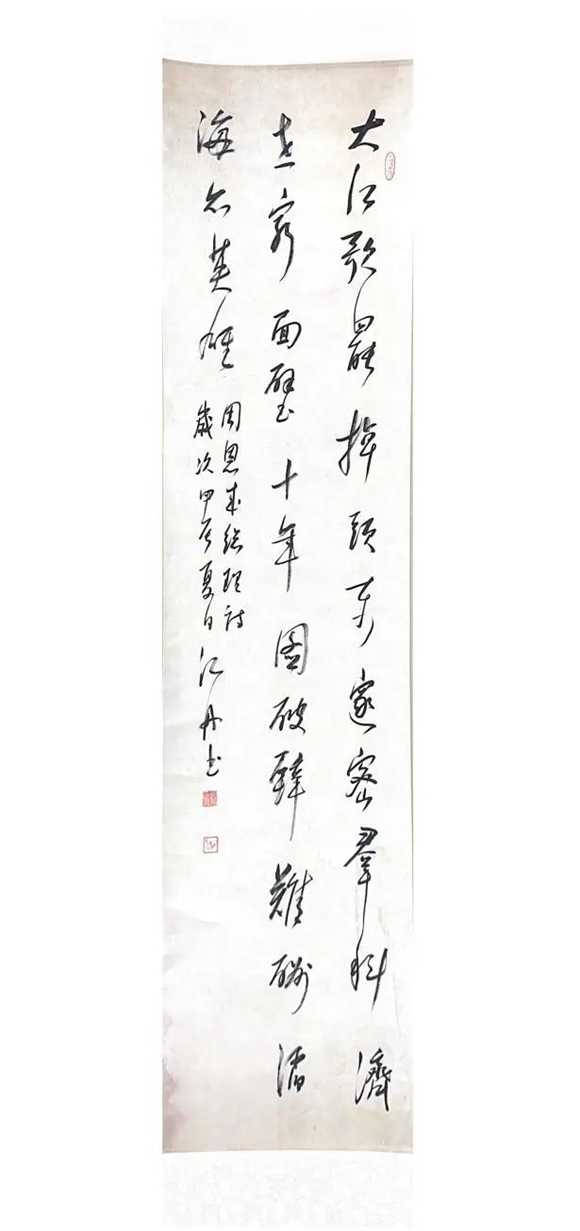 大江歌罷掉頭東邃密羣科濟
世窮面壁十年圖破壁難酬蹈
海亦英雄
周恩來總理詩
歲次甲辰夏日江丹书